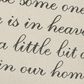 se some one
is in heave
a little bit o
in our hom